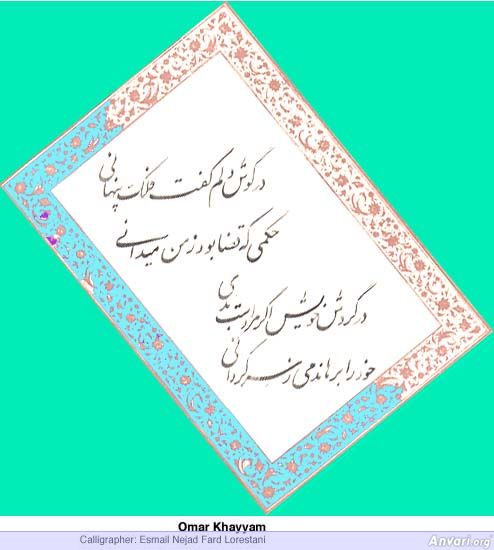 در گوش دلم گفت فلک پنهانی
حکمی که قضا بود ز من میدانی
در گردش خویش اگر مرا دست بدی
خود را برهاندمی ز سرگردانی
Omar Khayyam
Calligrapher: Esmail Nejad Fard Lorestani
Anvari.org